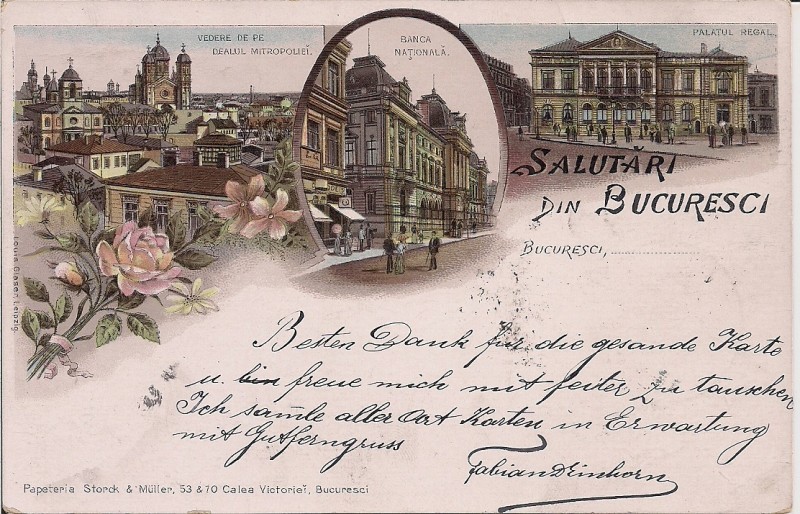 VEDERE DE PE
DEALUL MITROPOLIEĬ.
BANCA
NAŢIONALĂ.
PALATUL REGAL
SALUTĂRI
DIN BUCURESCI
BUCURESCI,
Louis Glaser, Leipzig
Besten Dank für die gesande Karte
u. bin freue mich mit zu tauschen
Ich sam̄le aller Art Karten in Erwartung
mit Gutferngruss
Fabian Einhorn
Papeteria Storck & Müller, 53 & 70 Calea Victorieĭ, Bucuresci